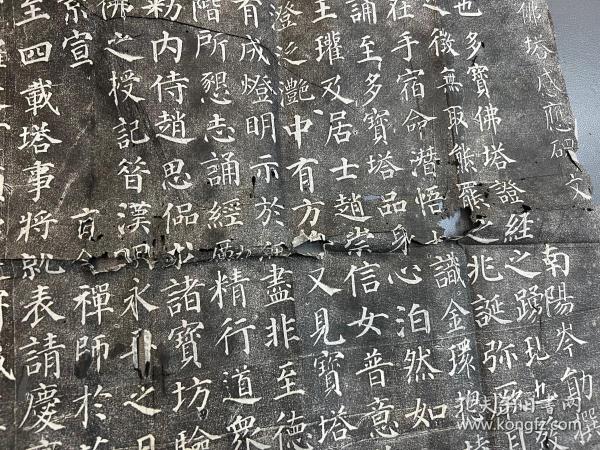 佛塔感應碑文 南陽岑勛撰
也多寶佛塔證經之踴現也發
之徵無取熊羆之兆誕弥厥月
在手宿命潛悟識金環揔
誦至多寶塔品身心泊然如
王瓘及居士趙崇信女普意
澄泛灩中有方又見寶塔
有成燈明示於盡非至德
階所懇志誦經勵精行道衆
勑内侍趙思偘求諸寶坊驗
佛之授記昔漢明永平之日
景宣旨令禪師於花
至四載塔事將就表請慶齋